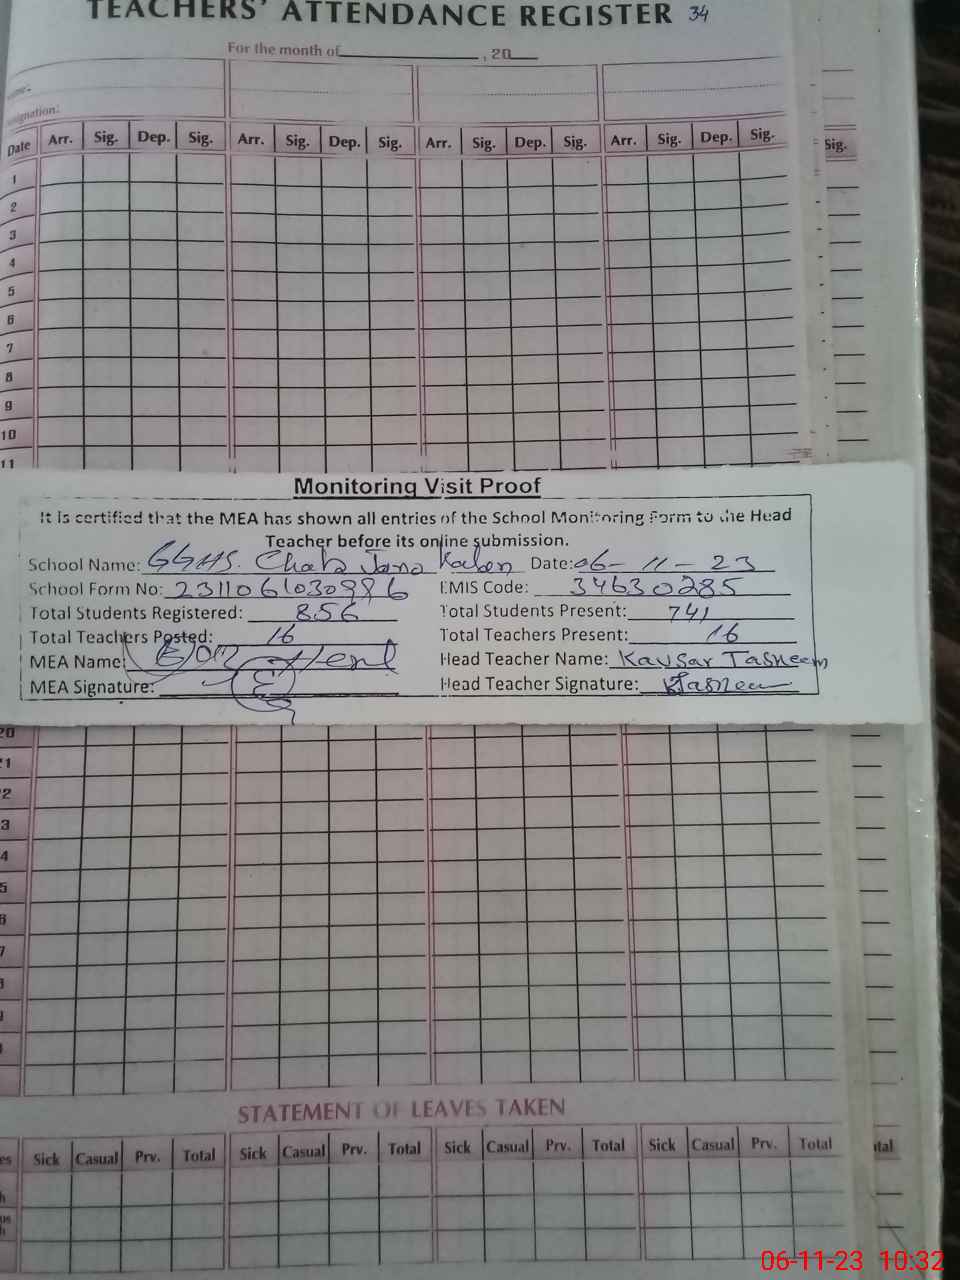 TEACHERS' ATTENDANCE REGISTER 34
For the month of , 20
Date Arr. Sig. Dep. Sig. Arr. Sig. Dep. Sig. Arr. Sig. Dep. Sig. Arr. Sig. Dep. Sig. Sig.
1
2
3
4
5
6
7
8
9
10
11
Monitoring Visit Proof
It is certified that the MEA has shown all entries of the School Monitoring Form to the Head
Teacher before its online submission.
School Name: GGHS. Kalan Date: 06-11-23
School Form No: EMIS Code: 34630285
Total Students Registered: 856 Total Students Present: 741
Total Teachers Posted: 16 Total Teachers Present: 16
MEA Name: Head Teacher Name: Kausar Tasneem
MEA Signature: Head Teacher Signature: Tasneem
20
STATEMENT OF LEAVES TAKEN
Sick Casual Prv. Total Sick Casual Prv. Total Sick Casual Prv. Total Sick Casual Prv. Total
06-11-23 10:32